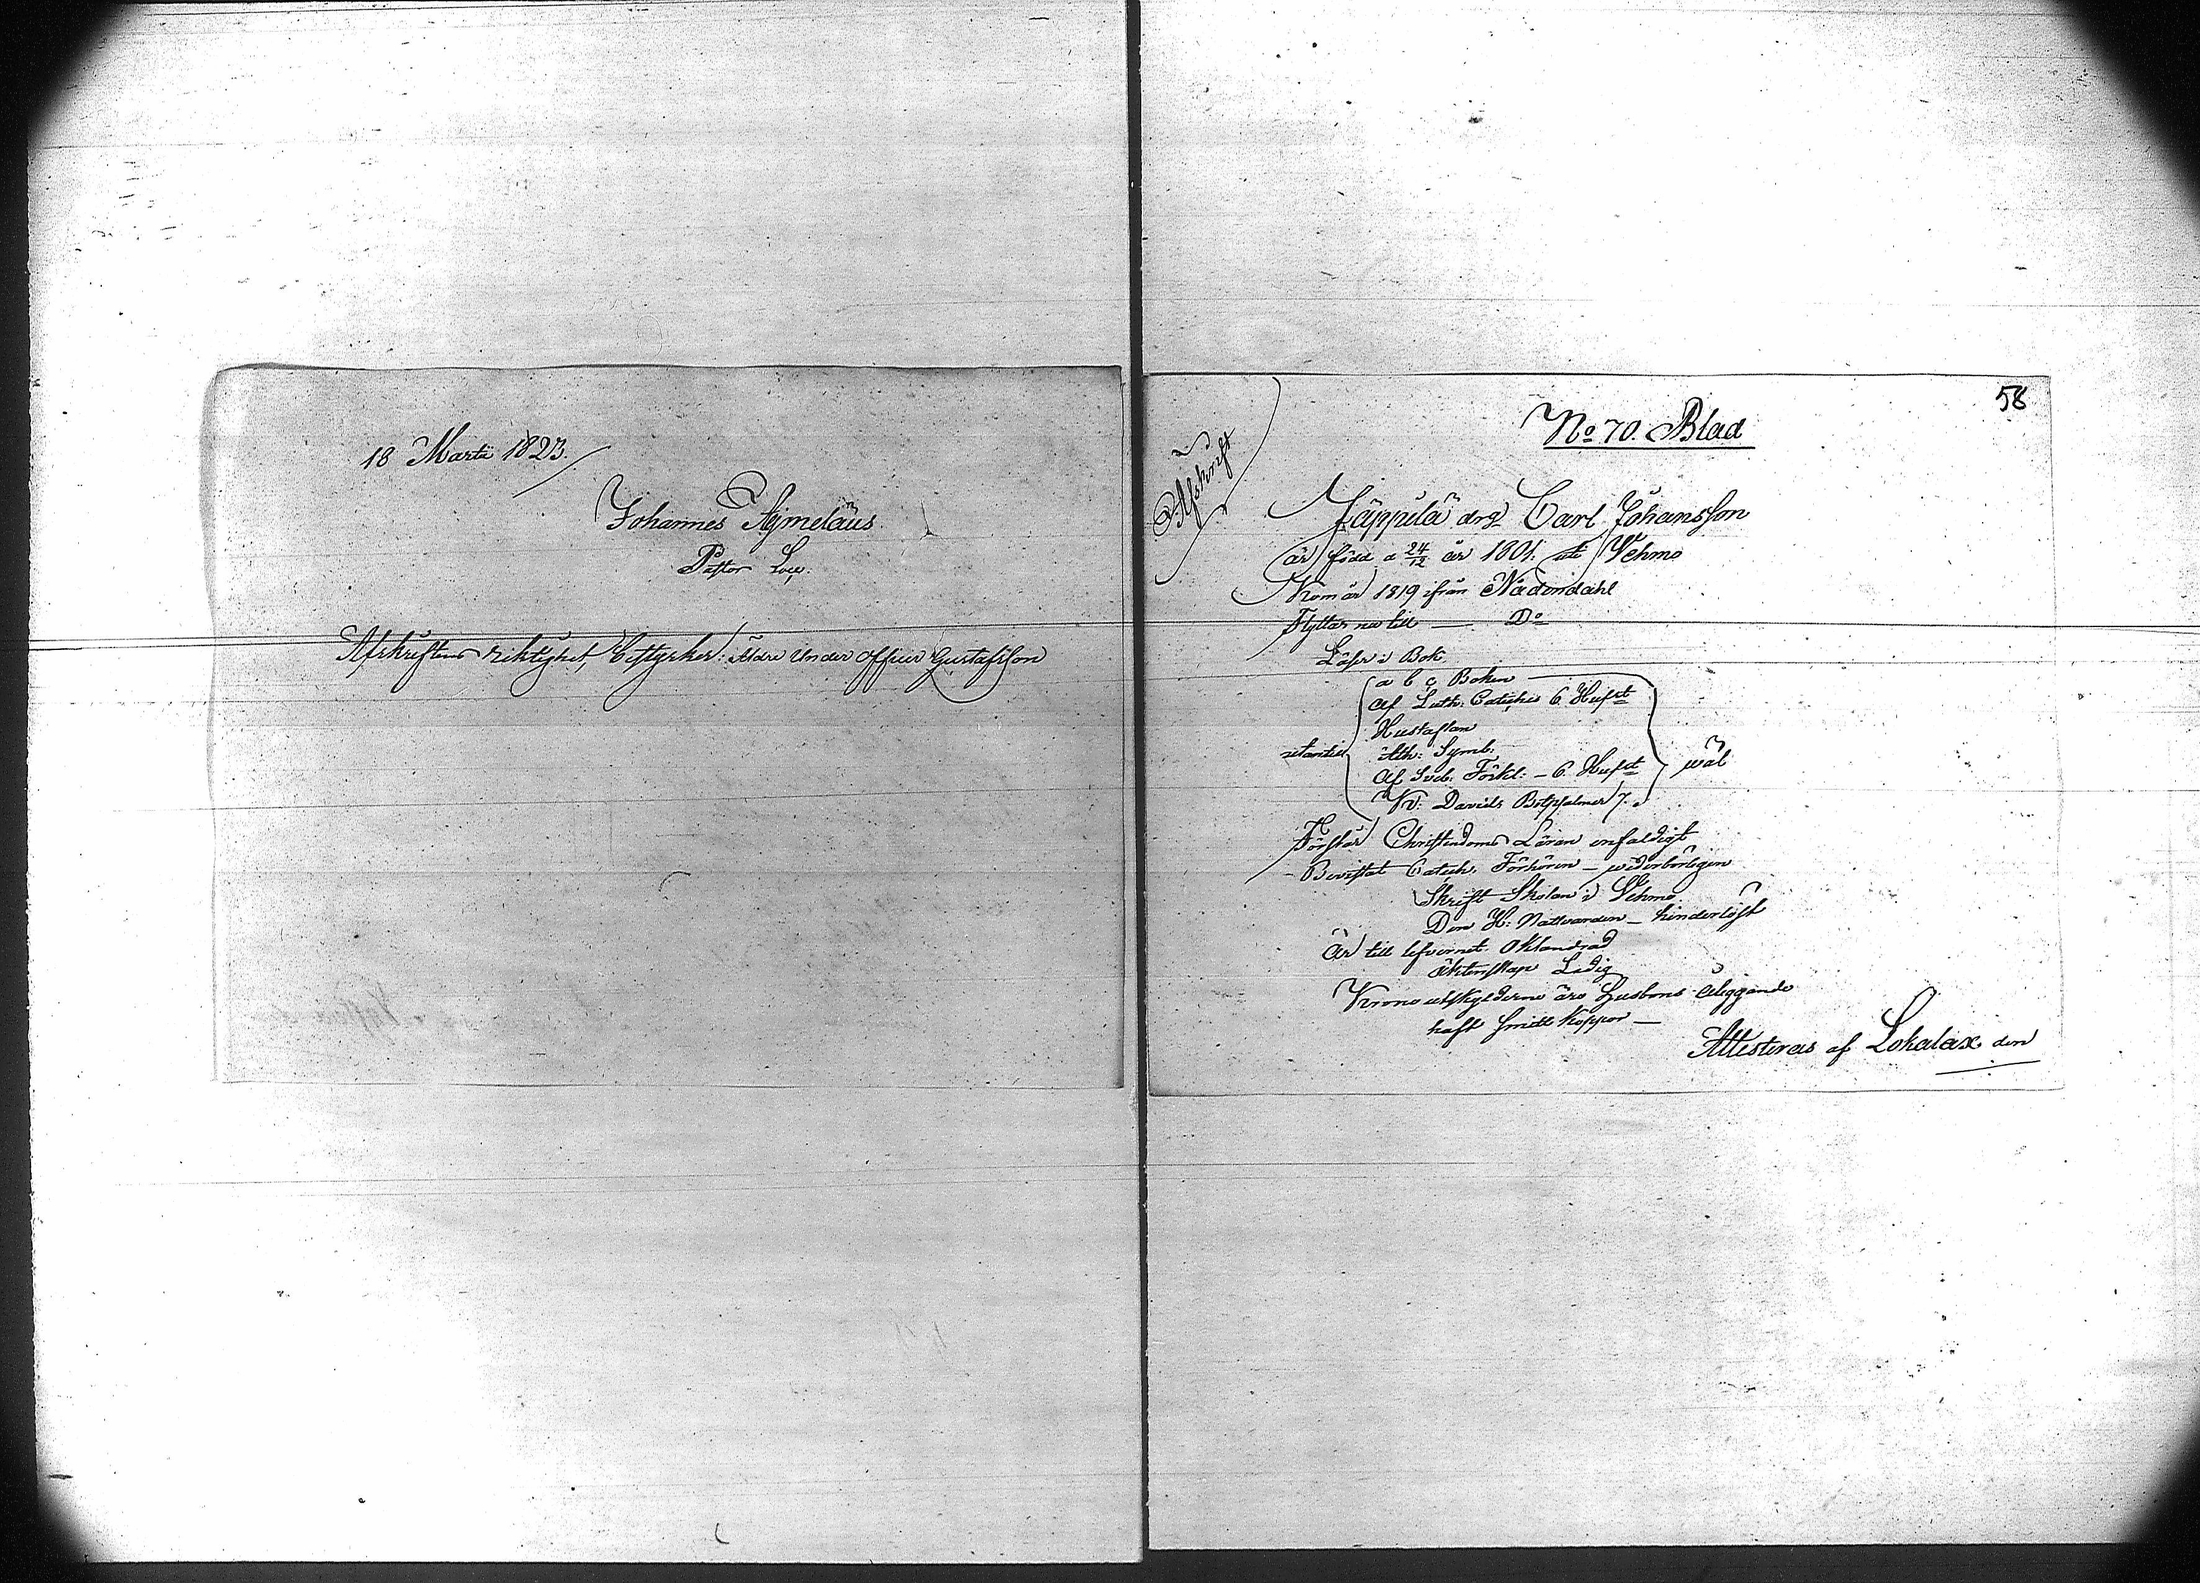 18 Martii 1823.
Johannes Aymelaüs
Pastor Loci.
Afskriftens riktighet, bestyrker: Äldre Under Officer Gustafsson
58
No 70. Blad
Afskrift
Jäppilä drg Carl Johansson
är född d 24/12 år 1801. uti Vehmo
Kom år 1819 ifrån Nådendahl
Flyttar nu till — Do
Läser i Bok
a b c Boken
Af Luth: Cateches 6 Hufst
Hustaflan
utantill
Ath: Symb:
Af Sveb. Förkl: – 6. Hufst
wäl
K: Davids Botpsalmer 7.
Förstår Christendoms Läran enfaldigt
Bevistat Catech. Förhören – wederbörligen
Skrift Skolan i Vehmo
Den H: Nattvarden – hinderlöst
Är till lefvernet. Oklandrad
äktenskap Ledig
Krono utskylderne äro Husbons åliggande
haft Smitt Koppor —
Attesteras af Lokalax den